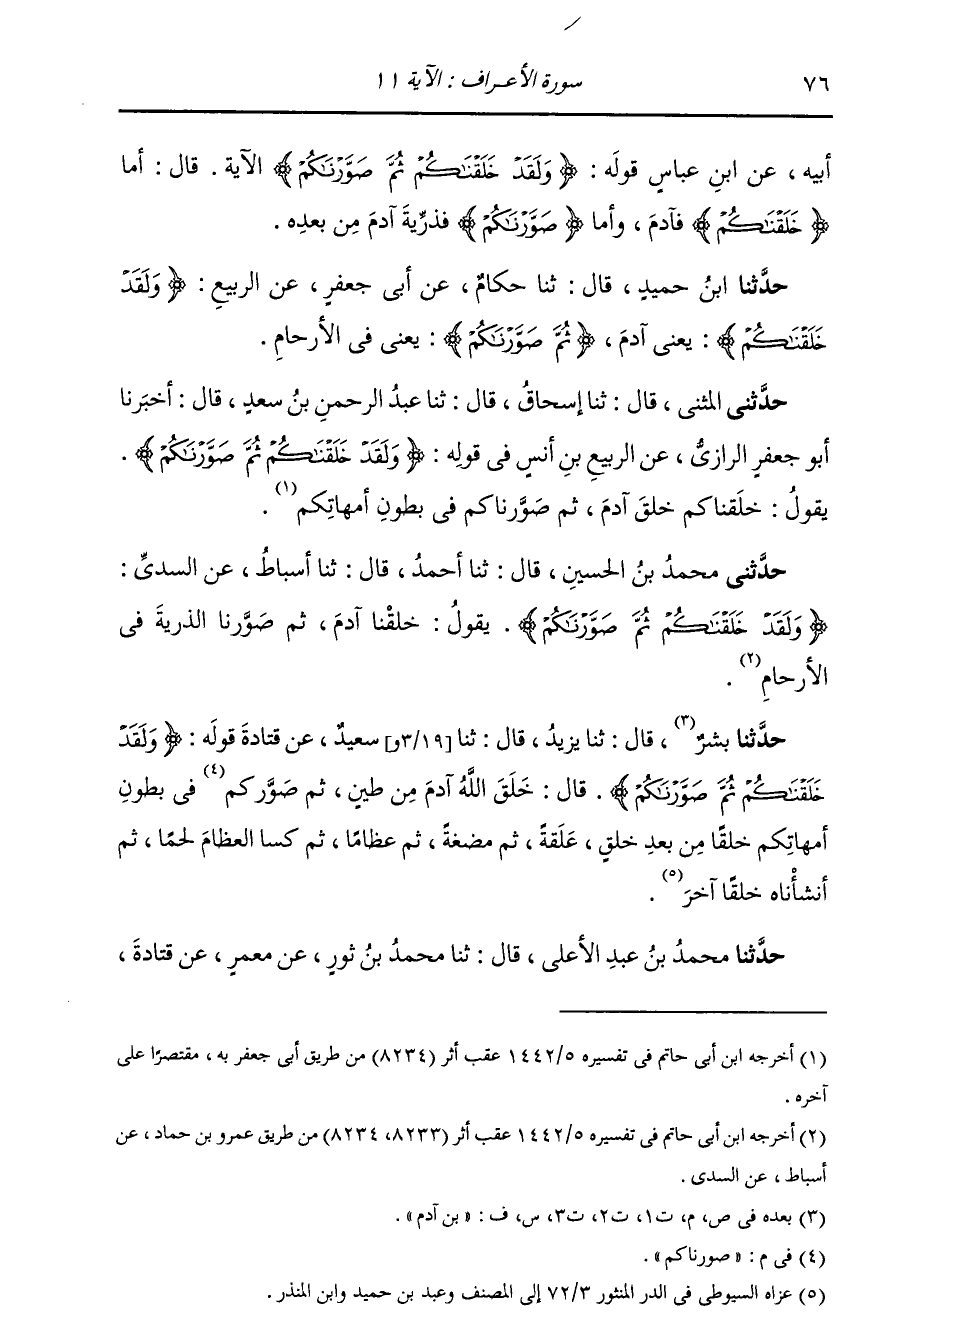 ٧٦ سورة الأعراف : الآية ١١
أبيه ، عن ابنِ عباسٍ قولَه : ﴿ وَلَقَدْ خَلَقْنَاكُمْ ثُمَّ صَوَّرْنَاكُمْ ﴾ الآية . قال : أما
﴿ خَلَقْنَاكُمْ ﴾ فآدمَ ، وأما ﴿ صَوَّرْنَاكُمْ ﴾ فذرِّيةَ آدمَ مِن بعدِه .
حدَّثنا ابنُ حميدٍ ، قال : ثنا حكامٌ ، عن أبى جعفرٍ ، عن الربيعِ : ﴿ وَلَقَدْ
خَلَقْنَاكُمْ ﴾ : يعنى آدمَ ، ﴿ ثُمَّ صَوَّرْنَاكُمْ ﴾ : يعنى فى الأرحامِ .
حدَّثنى المثنى ، قال : ثنا إسحاقُ ، قال : ثنا عبدُ الرحمنِ بنُ سعدٍ ، قال : أخبَرنا
أبو جعفرٍ الرازىُّ ، عن الربيعِ بنِ أنسٍ فى قولِه : ﴿ وَلَقَدْ خَلَقْنَاكُمْ ثُمَّ صَوَّرْنَاكُمْ ﴾ .
يقولُ : خلَقناكم خلقَ آدمَ ، ثم صَوَّرناكم فى بطونِ أمهاتِكم (١) .
حدَّثنى محمدُ بنُ الحسينِ ، قال : ثنا أحمدُ ، قال : ثنا أسباطُ ، عن السدىِّ :
﴿ وَلَقَدْ خَلَقْنَاكُمْ ثُمَّ صَوَّرْنَاكُمْ ﴾ . يقولُ : خلقْنا آدمَ ، ثم صَوَّرنا الذريةَ فى
الأرحامِ (٢) .
حدَّثنا بشرٌ (٣) ، قال : ثنا يزيدُ ، قال : ثنا [٣/١٩و] سعيدٌ ، عن قتادةَ قولَه : ﴿ وَلَقَدْ
خَلَقْنَاكُمْ ثُمَّ صَوَّرْنَاكُمْ ﴾ . قال : خَلَقَ اللَّهُ آدمَ مِن طينٍ ، ثم صَوَّركم (٤) فى بطونِ
أمهاتِكم خلقًا مِن بعدِ خلقٍ ، عَلَقةً ، ثم مضغةً ، ثم عظامًا ، ثم كسا العظامَ لحمًا ، ثم
أنشأْناه خلقًا آخرَ (٥) .
حدَّثنا محمدُ بنُ عبدِ الأعلى ، قال : ثنا محمدُ بنُ ثورٍ ، عن معمرٍ ، عن قتادةَ ،
(١) أخرجه ابن أبى حاتم فى تفسيره ١٤٤٢/٥ عقب أثر (٨٢٣٤) من طريق أبى جعفر به ، مقتصرًا على
آخره .
(٢) أخرجه ابن أبى حاتم فى تفسيره ١٤٤٢/٥ عقب أثر (٨٢٣٣، ٨٢٣٤) من طريق عمرو بن حماد ، عن
أسباط ، عن السدى .
(٣) بعده فى ص، م، ت١، ت٢، ت٣، س، ف : « بن آدم » .
(٤) فى م : « صورناكم » .
(٥) عزاه السيوطى فى الدر المنثور ٧٢/٣ إلى المصنف وعبد بن حميد وابن المنذر .